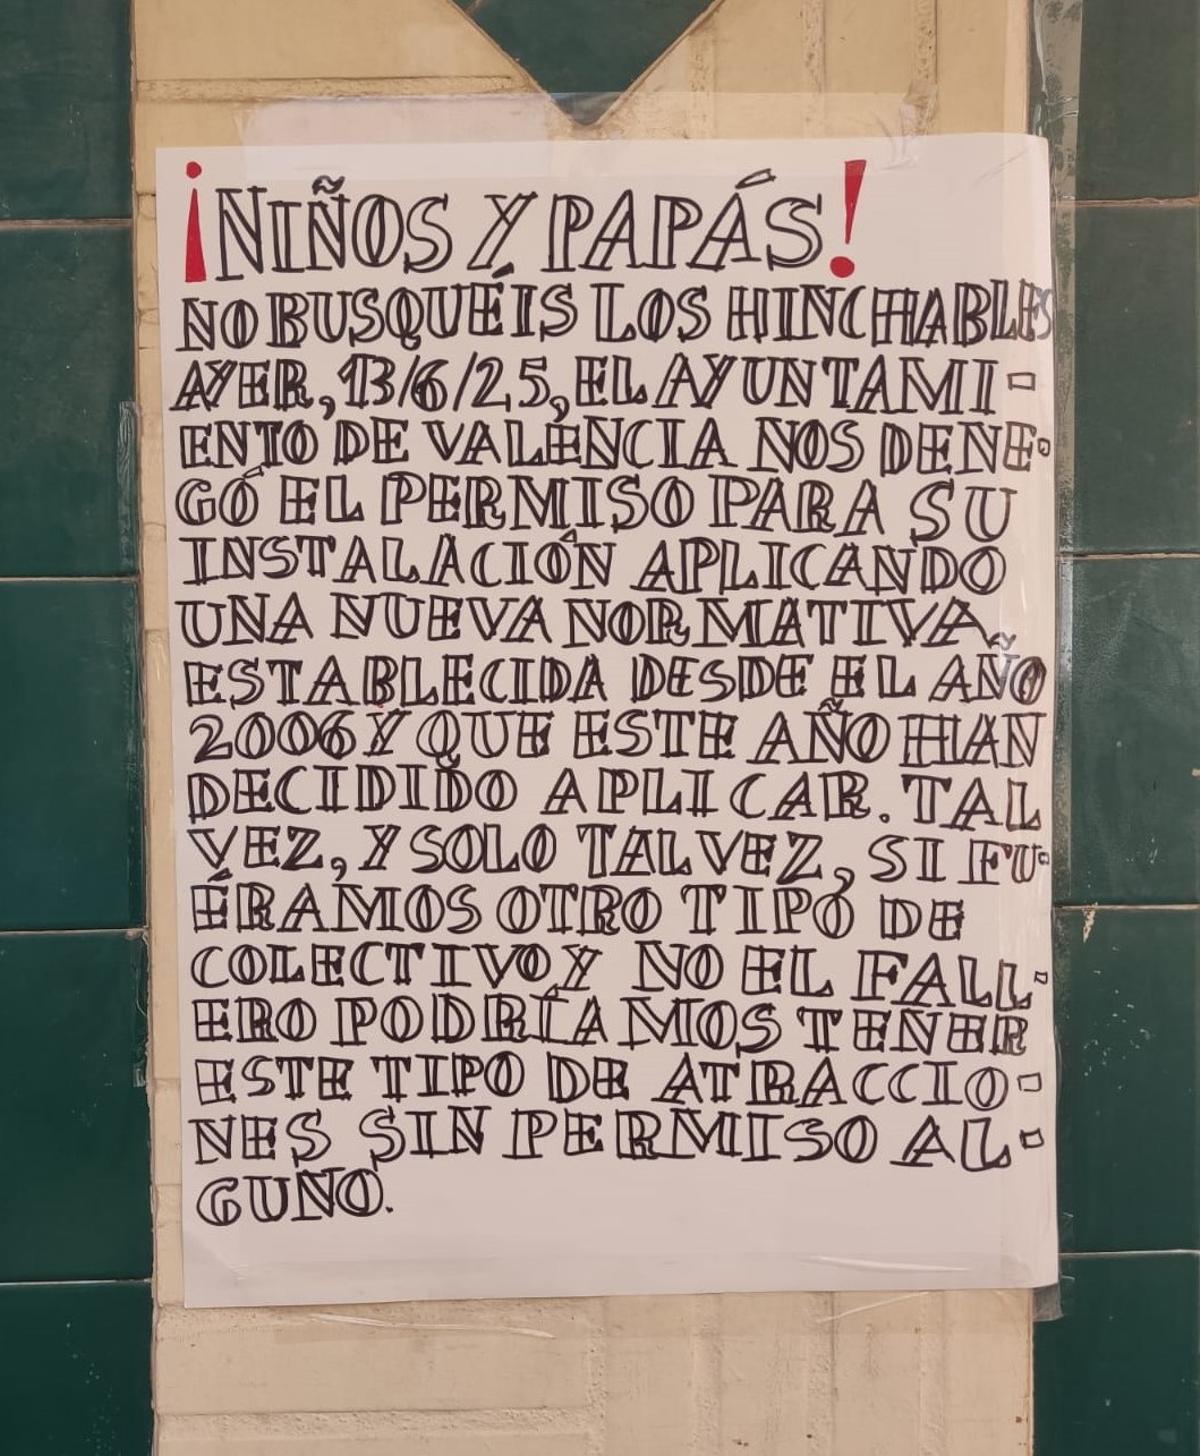 ¡NIÑOS Y PAPÁS!
NO BUSQUÉIS LOS HINCHABLES
AYER, 13/6/25, EL AYUNTAMI-
ENTO DE VALENCIA NOS DENE-
GÓ EL PERMISO PARA SU
INSTALACIÓN APLICANDO
UNA NUEVA NORMATIVA
ESTABLECIDA DESDE EL AÑO
2006 Y QUE ESTE AÑO HAN
DECIDIDO APLICAR. TAL
VEZ, Y SOLO TAL VEZ, SI FU-
ÉRAMOS OTRO TIPO DE
COLECTIVO Y NO EL FALL-
ERO PODRÍAMOS TENER
ESTE TIPO DE ATRACCIO-
NES SIN PERMISO AL-
GUNO.